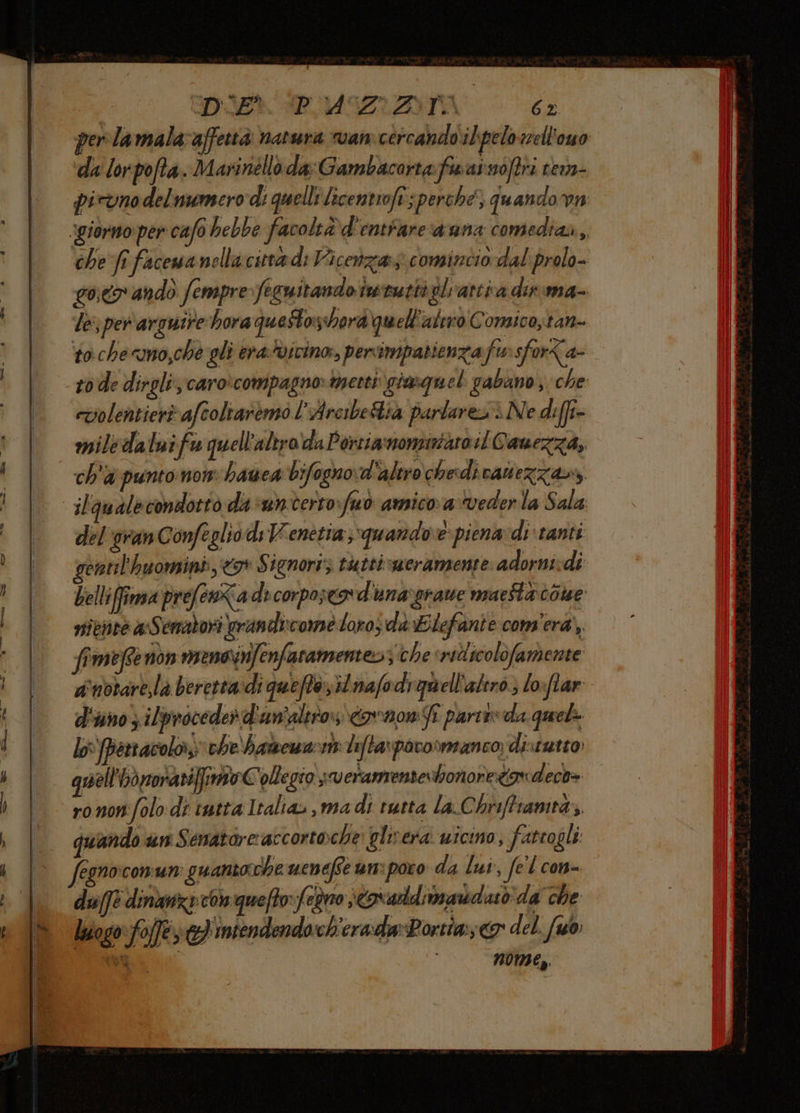 DE' PAZZIA 62
per la mala affettà natura van cercando il pelo nell'ouo
da lor posta. Marinello da Gambacorta fu ai nostri tem-
pi vno del numero di quelli licentiosi; perche', quando vn
giorno per caso hebbe facoltà d'entrare a una comedia,
che si faceua nella città di Vicenza, cominciò dal prolo-
go, & andò sempre seguitando in tutti gli atti a dir ma-
le, per arguire hora questo, hora quell'altro Comico, tan-
to che vno, che gli era vicino, per impatienza fu sforza-
to de dirgli, caro compagno metti giù quel gabano, che
volentieri ascoltaremo l'Arcibestia parlare. Ne dissi-
mile da lui fu quell'altro da Portia nominato il Cauezza,
ch'a punto non hauea bisogno d'altro che di cauezza,
il quale condotto da un certo suò amico a veder la Sala
del gran Conseglio di Venetia, quando è piena di tanti
gentil'huomini, & Signori, tutti ueramente adorni di
bellissima presenza di corpo, & d'una graue maestà coue
niente a Senatori grandi come loro, da Elefante com'era,
si mise non men insensatamente, che ridicolosamente
a notare, la beretta di questo, il naso di quell'altro, lo star
d'uno, il proceder d'un'altro, & non si partì da quel-
lo spettacolo, che haueua in lista poco manco, di tutto
quell'honoratissimo Collegio, veramente honore & deco-
ro non solo di tutta Italia, ma di tutta la Christianità,
quando un Senatore accorto che gli era uicino, fattogli
segno con un guanto che uenesse un poco da lui, se'l con-
dusse dinanzi con questo segno, & addimandatò da che
luogo fosse, & intendendo ch'era da Portia, & del suo
nome,